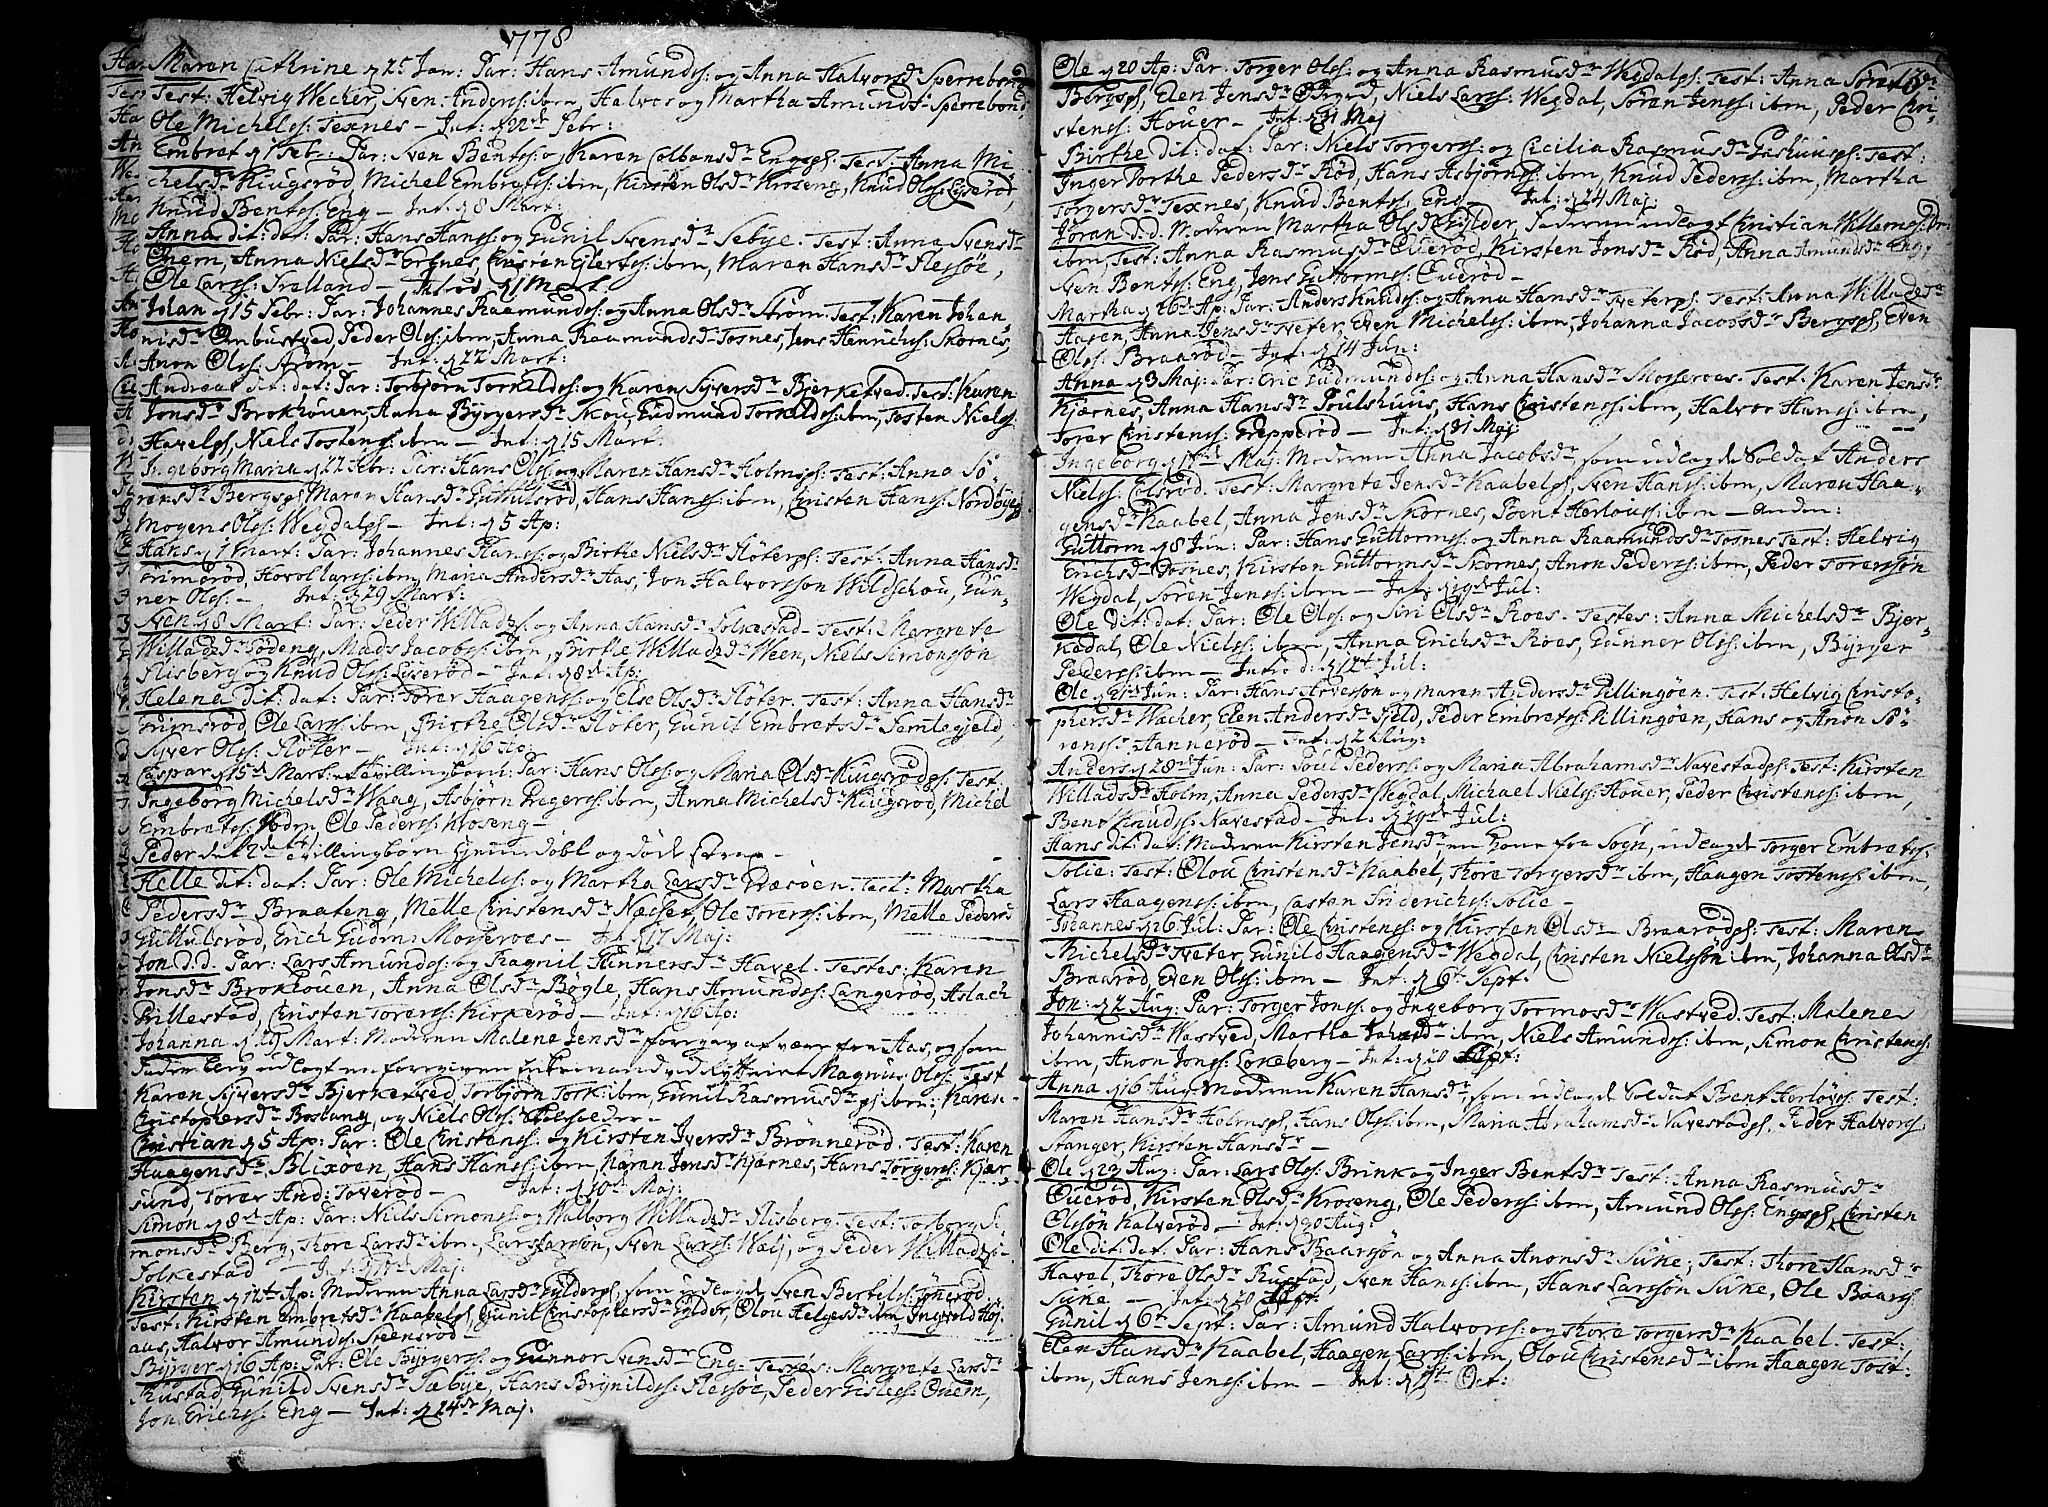 778
Maren Cathrine d 25 Jan: Par: Hans Amunds: og Anna Halvorsd. Sperrebond
Test: Helvig Wecher, Sven Anders: ibm, Halvor og Martha Amunds: Sperrebond,
Ole Michels: Texnes – Int: d 22de Febr:
Embret d 1 Febr: Par: Sven Bents: og Karen Colbansdr Engsps: Test: Anna Mi-
chelsdr Kiugsrød, Michel Embrets: ibm, Kirsten Olsdr Kroseng, Knud Ols: Lyserød,
Knud Bents: Eng – Int: d 8 Mart:
Anna dit: dat: Par: Hans Hans: og Gunil Svensdr Sebye. Test: Anna Svensdr
Qvem, Anna Nielsdr Ørsnes, Ejlerts: ibm, Maren Hansdr Flessøe,
Ole Lars: Trolland – Introd d 1 Mart.
Johan d 15 Febr: Par: Johannes Raamunds: og Anna Olsdr Strøm. Test: Karen Johan-
nisdr Ombustved, Peder Ols: ibm, Anna Raamundsdr Tosnes, Jens Henrichs: Skornes,
Anon Ols: Strøm – Int: d 22 Mart:
Andreas dit: dat: Par: Torbjørn Torkilds: og Karen Syversdr Bjerketved. Test: Karen
Jonsdr Brokhouen, Anna Byrgersdr Skou, Gudmund Torkilds: ibm, Tosten Niels:
Havelps, Niels Tostens: ibm – Int: d 15 Mart:
Ingeborg Maria d 22 Febr: Par: Hans Ols: og Maren Hansdr Holmsps: Test: Anna Sø-
rensdr Bergsps, Maren Hansdr Guttulsrød, Hans Hans: ibm, Christen Hans: Nordbye
Mogens Ols: Wegdalps – Int: d 5 Ap:
Hans d 1 Mart: Par: Johannes Hans: og Birthe Nielsdr Sløterps: Test: Anna Hansdr
Grimsrød, Hovol Lars: ibm, Maria Andersdr Aas, Jon Halvorsson Wildschou, Gun-
ner Ols: – Int: d 29 Mart:
Sven d 8 Mart: Par: Peder Willads: og Anna Hansdr Folkestad – Test: Margrete
Willadsdr Sødeng, Mads Jacobs: ibm, Birthe Willadsdr Ween, Niels Simonsson
Flisberg og Knud Ols: Lyserød – Int: d 8 Ap:
Helena dit: dat: Par: Torer Haagens: og Else Olsdr Sløter. Test: Anna Hansdr
Grimsrød, Ole Lars: ibm, Birthe Olsdr Sløter, Gunil Embretsdr Semlegjeld,
Syver Ols: Sløter – Int: d 16 Ap:
Caspar d 15d Mart: et Tvillingborn: Par: Hans Ols: og Maria Olsdr Kiugsrødps, Test:
Ingeborg Michelsdr Waag, Asbjørn Pregers: ibm, Anna Michelsdr Kiugsrød, Michel
Embrets: Ibdm, Ole Peders: Kroseng –
Peder det 2det Tvillingborn hjemmedøbt og døde strax –
Helle dit: dat: Par: Ole Michels: og Martha Larsdr Dæsøen. Test: Martha
Pedersdr Braateng, Melle Christensdr Næsset, Ole Torers: ibm, Melle Peders
Guttulsrød, Erich Gudm: Mosseroes – Int d 17 Maj:
Jon d.d. Par: Lars Amunds: og Ragnil Gunnersdr Havel. Testes: Karen
Jonsdr Brokhouen, Anna Olsdr Bøgle, Hans Amunds: Langerød, Aslach
Grillestad, Christen Torers: Kirkerød – Int: d 16 Ap:
Johanna d 29 Mart: Moderen Malene Jensdr foregav at være fra Aas, og som
Fader blev udlagt en foregiven Enkemand ved Rytteriet Magnus Ols: Test
Karen Syversdr Bjerketved, Torbjørn Tork: ibm, Gunil Rasmusdr ps ibm: Karen
Christophersdr Bostang, og Niels Ols: –
Christian d 5 Ap: Par: Ole Christens: og Kirsten Iversdr Brønnerød. Test: Karen
Haagensdr Blixoen, Hans Hans: ibm, Karen Jensdr Kjærnes, Hans Torgers: Kjær-
sund, Torer And: Toverød – Int: d 10de Maj:
Simon d 8d Ap: Par: Niels Simons: og Walborg Willadsdr Flisberg. Test: Torborg Si-
monsdr Berg, Thore Larsdr ibm, Lars Larssøn, Sven Lars: Wæj, og Peder Willads:
Folkestad – Int: d Maj:
Kirsten d 12te Ap: Moderen Anna Larsdr Gylderps, som udlagde Sven Bertels: Tønerød.
Test: Kirsten Embretsdr Kaabelps, Gunil Christophersdr Gylder, Olou Helgesdr ibm, Ingvold Høj-
aas, Halvor Amunds: Steensrød –
Byrger d 16 Ap: Par: Ole Byrgers: og Gunnor Svensdr Eng: Testes: Margrete Larsdr
Rustad, Gunild Svensdr Sæbye, Hans Brynilds: Flessøe, Peder Gisles: Qvem,
Jon Erichs: Eng – Int: d 24de Maj:
Ole d 20 Ap: Par: Torger Ols: og Anna Rasmusdr Wegdalps: Test: Anna Sørensdr
Bergsps, Elen Jensdr Ørgrd, Niels Lars: Wegdal, Søren Jens: ibm, Peder Chri-
stens: Houer – Int: d 31 Maj
Birthe dit: dat: Par: Niels Torgers: og Cicilia Rasmusdr Gashuusps: Test:
Inger Dorthe Pedersdr Rød, Hans Asbjørns: ibm, Knud Peders: ibm, Martha
Torgersdr Texnes, Knud Bents: Eng – Int: d 24 Maj:
Jøran d.d. Moderen Martha Olsdr Gylder, Faderen udlagt Christian Willems:
ibm, Test: Anna Rasmusdr Ouerød, Kirsten Jonsdr Rød, Anna Amundsdr Eng,
Sven Bents: Eng, Jens Guttorms: Ouerød –
Martha d 26d Ap: Par: Anders Knuds: og Anna Hansdr Tveterps: Test: Anna Willadsdr
Aasen, Anna Jensdr Tveter, Even Michels: ibm, Johanna Jacobsdr Bergsps, Even
Ols: Braarød – Int: d 14 Jun:
Anna d 3 Maj: Par: Eric Gudmunds: og Anna Hansdr Mosseroes. Test: Karen Jensdr
Kjærnes, Anna Hansdr Poulshuus, Hans Christens: ibm, Halvor Hans: ibm,
Torer Christens: Grepperød – Int: d 31 Maj:
Ingeborg d 17de Maj: Moderen Anna Jacobsdr som udlagde Soldat Anders
Niels: Colsrød. Test: Margrete Jensdr Kaabelps, Sven Hans: ibm, Maren Haa-
gensdr Kaabel, Anna Jensdr Skornes, Bent Herlous: ibm – Anden:
Guttorm d 8 Jun: Par: Hans Guttorms: og Anna Raamundsdr Tosnes Test: Helvig
Erichsdr Tosnes, Kirsten Guttormsdr Skornes, Anon Peders: ibm, Peder Torerssøn
Wegdal, Søren Jens: ibm – Int: d 19de Jul:
Ole dit: dat: Par: Ole Ols: og Siri Olsdr Roes. Testes: Anna Michelsdr Bjør-
kedal, Ole Niels: ibm, Anna Erichsdr Roes, Gunner Ols: ibm, Byrger
Peders: ibm – Introd: d 12te Jul:
Ole d Jun: Par: Hans Arvesson og Maren Andersdr Pillingøen. Test: Helvig Christo-
phersdr Wacher, Elen Andersdr Fjeld, Peder Embrets: Pillingøen, Hans og Anon Sø-
rens: Aannerød – Int: d 2 Aug:
Anders d 28de Jun: Par: Poul Peders: og Maria Abrahamsdr Navestadps: Test: Kirsten
Willadsdr Holm, Anna Pedersdr Wegdal, Michael Niels: Houer, Peder Christens: ibm,
Bent Knuds: Navestad – Int: d 19de Jul:
Hans dit: dat: Moderen Kirsten Jensdr en Kone fra Sogn, udlagde Torger Embrets:
Solie: Test: Olou Christensdr Kaabel, Thore Torgersdr ibm, Haagen Tostens: ibm,
Lars Haagens: ibm, Casten Friderichs: Solie –
Johannes d 26 Jul: Par: Ole Christens: og Kirsten Olsdr – Braarødps: Test: Maren
Michelsdr Tveter, Gunild Haagensdr Wegdal, Christen Nielssøn ibm, Johanna Olsdr
Braarød, Even Ols: ibm – Int: d 6te Sept:
Jon: d 2 Aug: Par: Torger Jons: og Ingeborg Tormosdr Wastved. Test: Malene
Johannisdr Wastved, Marthe dr ibm, Niels Amunds: ibm, Simon Christens:
ibm, Anon Jons: Lokeberg – Int: d 20 Sept:
Anna d 16 Aug: Moderen Karen Hansdr som udlagde Soldat Bent Herlous: Test:
Maren Hansdr Holmsps, Hans Ols: ibm, Maria Abrahamsdr Navestadps, Peder Halvors:
Stanger, Kirsten Hansdr –
Ole d 23 Aug: Par: Lars Ols: Brink og Inger Bentsdr Test: Anna Rasmusdr
Ouerød, Kirsten Olsdr Kroseng, Ole Peders: ibm, Amund Ols: Engsps, Christen
Olssøn Kalverød – Int: d 30 Aug:
Ole dit: dat: Par: Hans Baarssøn og Anna Anonsdr Suke; Test: Thore Hansdr
Havel, Thore Olsdr Rustad, Sven Hans: ibm, Hans Larssøn Suke, Ole Baars:
Suke – Int: d 20 Sept:
Gunil d 6te Sept: Par: Amund Halvors: og Thore Torgersdr Kaabel. Test:
Elen Hansdr Kaabel, Haagen Lars: ibm, Olou Christensdr ibm Haagen Tost:
ibm, Hans Jens: ibm – Int: d Oct: